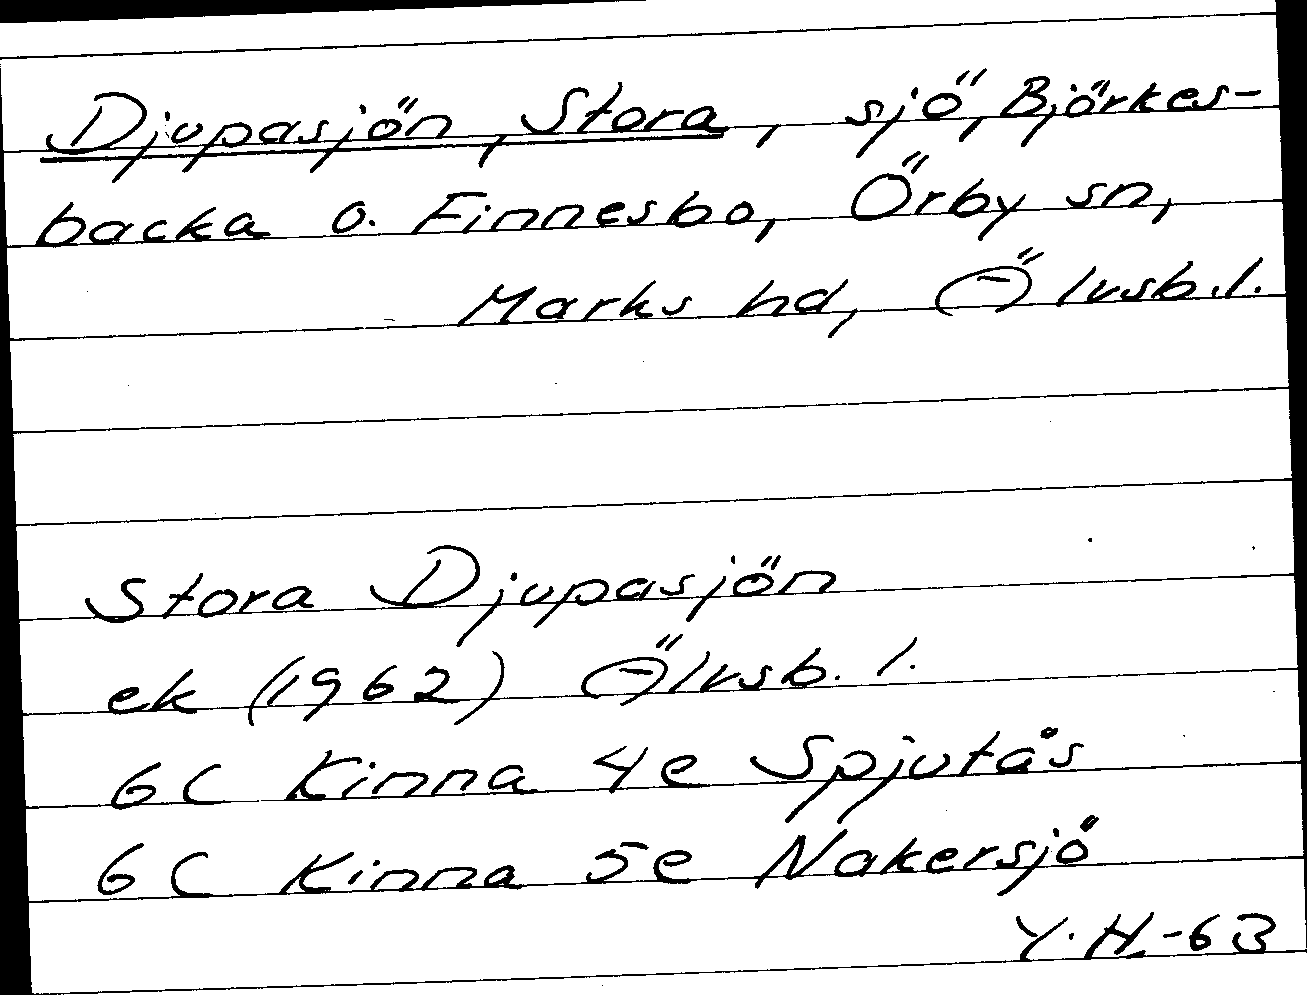 Djupasjön, Stora, sjö, Björkes-
backa o. Finnesbo, Örby sn,
Marks hd, Älvsb. l.
Stora Djupasjön
ek (1962) Älvsb. l.
6C Kinna 4e Spjutås
6C Kinna 5e Nakersjö
Y.H.-63